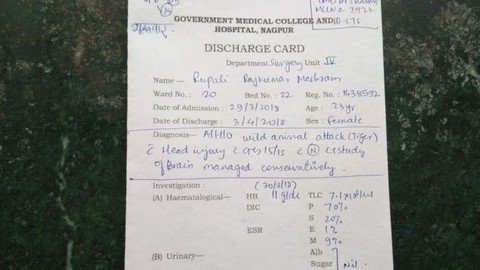 GOVERNMENT MEDICAL COLLEGE AND
HOSPITAL, NAGPUR
DISCHARGE CARD
Department Surgery Unit IV
Name — Rupali Rajkumar Meshram
Ward No. : 20 Bed No. : 22 Reg. No. : 1638592
Date of Admission : 29/3/2018 Age : 23yr
Date of Discharge : 3/4/2018 Sex : female
Diagnosis— A/H/O wild animal attack (Tiger)
c̄ Head injury c̄ GCS 15/15 c̄ (N) CT study
of Brain managed conservatively.
Investigation : (30/3/18)
(A) Haematological— HB 11g/dl TLC
DIC P 70%
S 20%
ESR E 1%
M 9%
(B) Urinary— Alb
Sugar Nil.